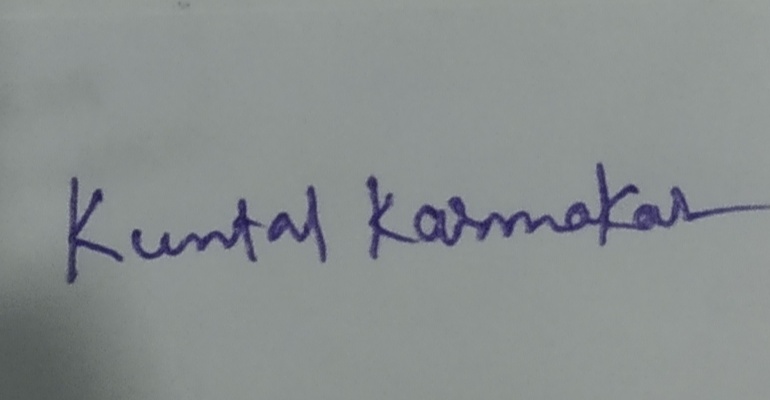 Kuntal Karmakar